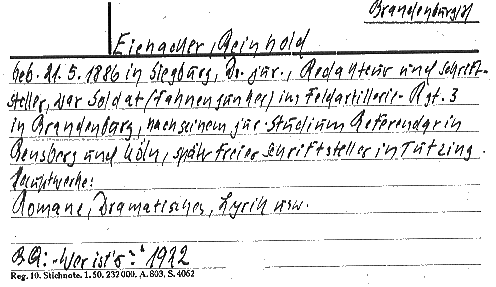 Brandenburg/H
Eichacker, Reinhold
Geb. 21.5.1886 in Siegburg, Dr. jur., Redakteur und Schrift-
steller, war Soldat (Fahnenjunker) im Feldartillerie-Rgt. 3
in Brandenburg, nach seinem jur. Studium Referendar in
Bensberg und Köln, später freier Schriftsteller in Tutzing.
Hauptwerke:
Romane, Dramatisches, Lyrik usw.
BQ: "Wer ist's?" 1922
Reg. 10. Stichnote. 1. 50. 232000. A. 803, S. 4062